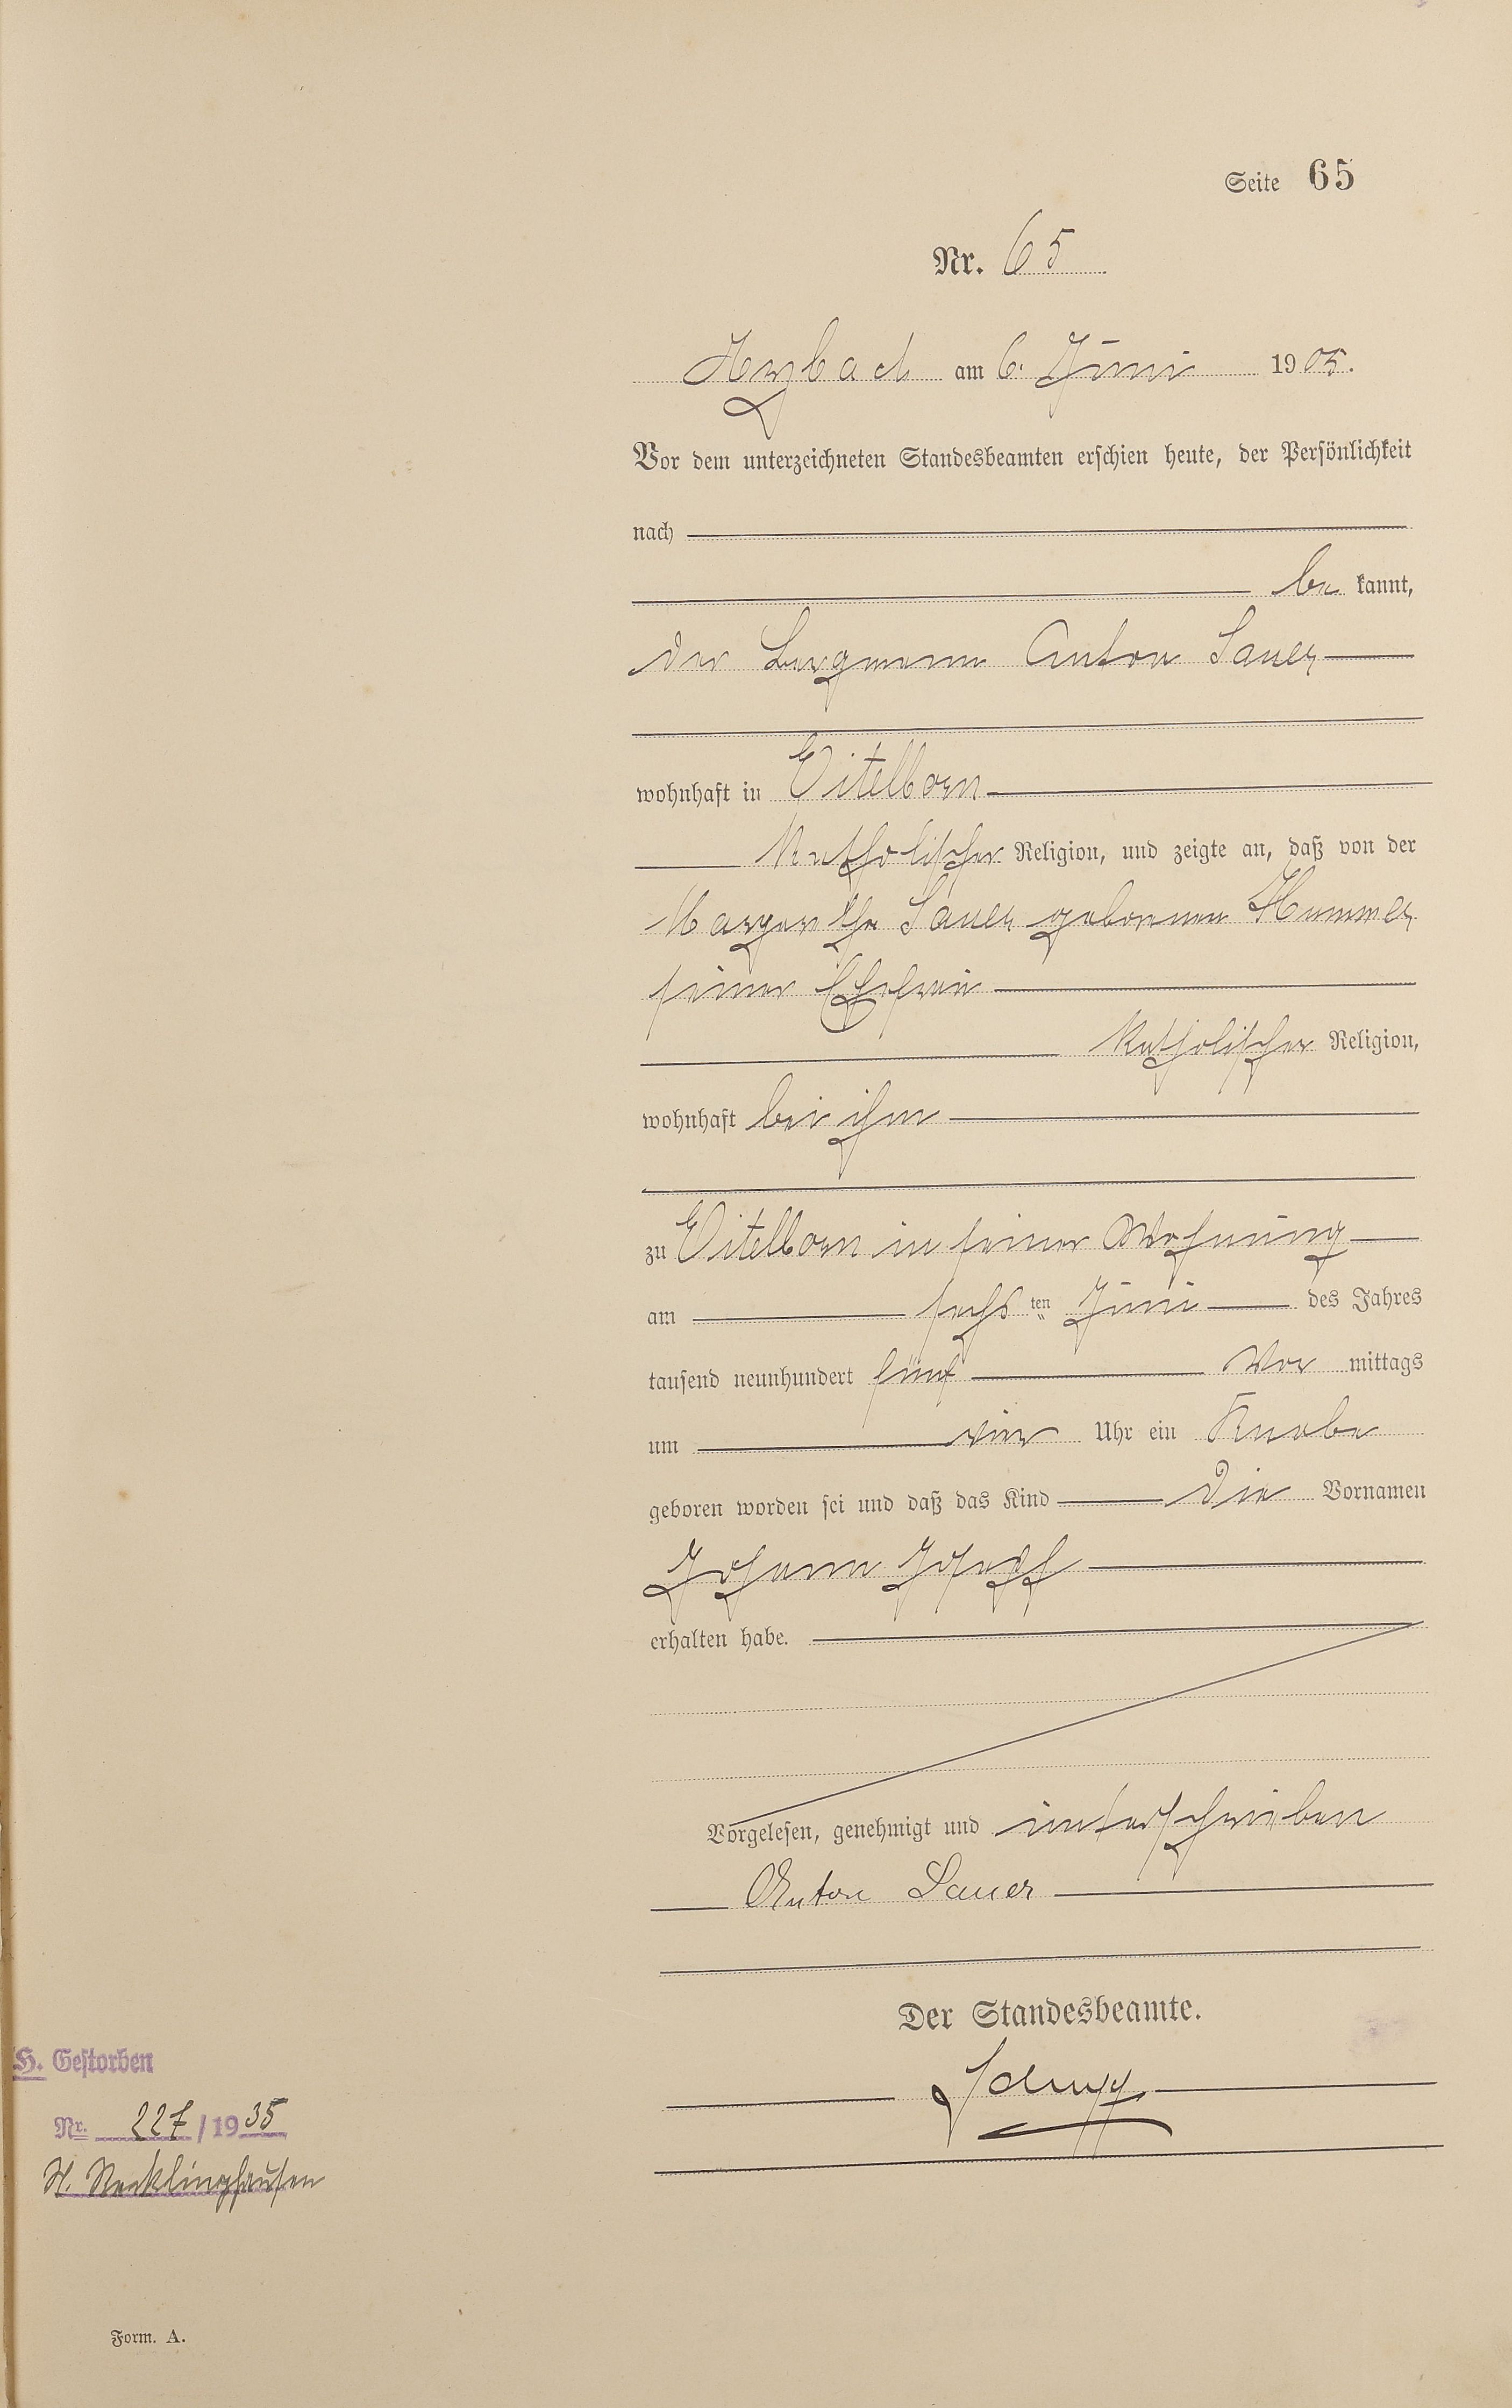 Seite 65
Nr. 65
Arzbach am 6. Juni 1905.
Vor dem unterzeichneten Standesbeamten erschien heute, der Persönlichkeit
nach
be kannt,
der Bergmann Anton Sauer
wohnhaft in Eitelborn
Katholischer Religion, und zeigte an, daß von der
Sauer geborenen Hummer
seiner Ehefrau
Katholischer Religion,
wohnhaft bei ihm
zu Eitelborn in seiner Wohnung
am sechs ten Juni des Jahres
tausend neunhundert fünf Vor mittags
um vier Uhr ein Knabe
geboren worden sei und daß das Kind die Vornamen
Johann Joseph
erhalten habe.
Vorgelesen, genehmigt und unterschrieben
Anton Sauer
Der Standesbeamte.
H. Gestorben
Nr. 227/1935
St. Recklinghausen
Form. A.